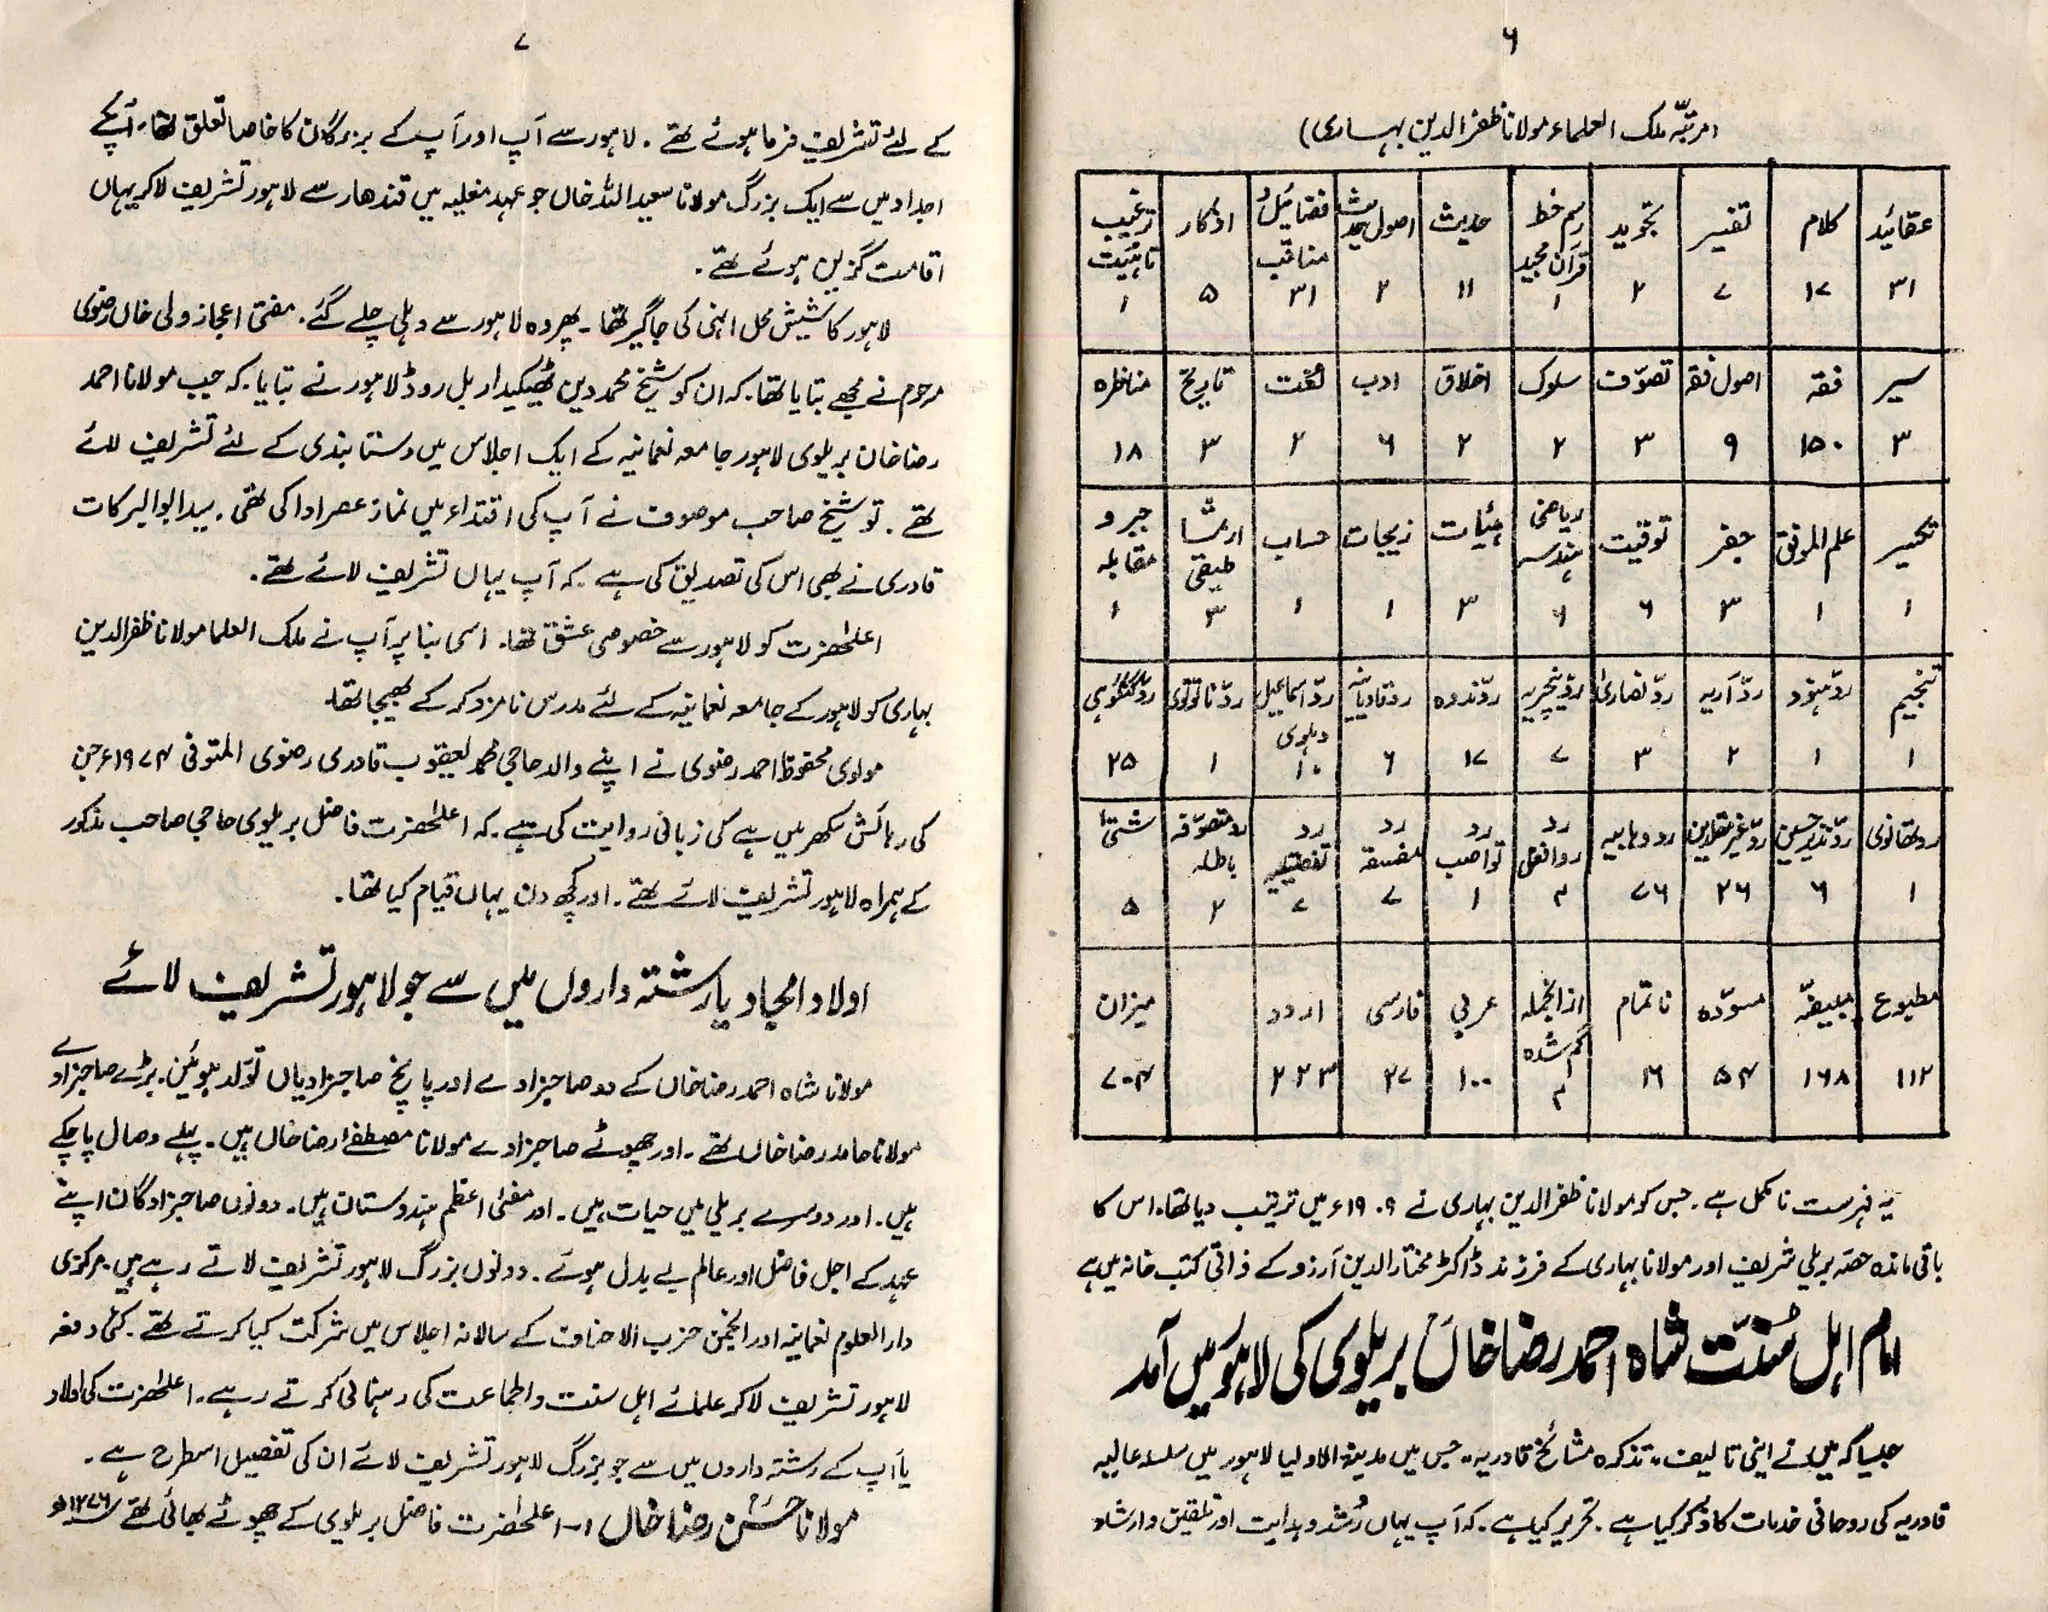 ۶
(مرتبہ ملک العلماء مولانا ظفر الدین بہاری)
عقائید کلام تفسیر تجوید رسم خط قرآن مجید حدیث اصول حدیث فضائیل و مناقب اذکار ترغیب
۳۱ ۱۷ ۷ ۲ ۱ ۱۱ ۲ ۳۱ ۵ ۱
سیر فقہ اصول فقہ تصوّف سلوک اخلاق ادب لغت تاریخ مناظرہ
۳ ۱۵۰ ۹ ۳ ۲ ۲ ۶ ۲ ۳ ۱۸
تکسیر علم الموفق جفر توقیت ریاضی ہندسہ ہئیات زیجات حساب ارثما طیقی جبر و مقابلہ
۱ ۱ ۳ ۶ ۶ ۳ ۱ ۱ ۳ ۱
تنجیم ردّ ہنود ردّ آریہ ردّ نصاریٰ ردّ نیچریہ ردّ ندوہ ردّ قادیانیہ ردّ اسماعیل دہلوی ردّ نانوتوی ردّ گنگوہی
۱ ۱ ۲ ۳ ۷ ۱۷ ۶ ۱۰ ۱ ۲۵
رد تھانوی ردّ نذیر حسین ردّ غیر مقلدین رد وہابیہ رد روافض رد نواصب رد مفسقہ رد تفضیلیہ رد متصوّفہ باطلہ شتیٰ
۱ ۶ ۲۶ ۷۶ ۴ ۱ ۷ ۷ ۲ ۵
مطبوع مبیضہ مسوّدہ ناتمام ازالجملہ گم شدہ عربی فارسی اردو میزان
۱۱۲ ۱۶۸ ۵۴ ۱۶ ۴ ۱۰۰ ۲۷ ۲۲۳ ۷۰۴
یہ فہرست نامکمل ہے۔ جس کو مولانا ظفر الدین بہاری نے ۱۹۰۹ء میں ترتیب دیا تھا۔ اس کا
باقی ماندہ حصہ بریلی شریف اور مولانا بہاری کے فرزند ڈاکٹر مختار الدین آرزو کے ذاتی کتب خانہ میں ہے
امام اہل سُنّت شاہ احمد رضا خاں بریلوی کی لاہور میں آمد
جیسا کہ میں نے اپنی تالیف "تذکرہ مشائخ قادریہ" جس میں مدینۃ الاولیا لاہور میں سلسلہ عالیہ
قادریہ کی روحانی خدمات کا ذکر کیا ہے۔ تحریر کیا ہے۔ کہ آپ یہاں رُشد و ہدایت اور تلقین و ارشاد
۷
کے لئے تشریف فرما ہوئے تھے۔ لاہور سے آپ اور آپ کے بزرگان کا خاصا تعلق تھا۔ آپکے
اجداد میں سے ایک بزرگ مولانا سعید اللہ خاں جو عہد مغلیہ میں قندھار سے لاہور تشریف لا کر یہاں
اقامت گزین ہوئے تھے۔
لاہور کا شیش محل انہی کی جاگیر تھا۔ پھر وہ لاہور سے دہلی چلے گئے۔ مفتی اعجاز ولی خاں رضوی
مرحوم نے مجھے بتایا تھا۔ کہ ان کو شیخ محمد دین ٹھیکیدار بل روڈ لاہور نے بتایا۔ کہ جب مولانا احمد
رضا خان بریلوی لاہور جامعہ نعمانیہ کے ایک اجلاس میں دستا بندی کے لئے تشریف لائے
تھے۔ تو شیخ صاحب موصوف نے آپ کی اقتداء میں نماز عصر ادا کی تھی۔ سید ابو البرکات
قادری نے بھی اس کی تصدیق کی ہے۔ کہ آپ یہاں تشریف لائے تھے۔
اعلٰحضرت کو لاہور سے خصوصی عشق تھا۔ اسی بنا پر آپ نے ملک العلما مولانا ظفر الدین
بہاری کو لاہور کے جامعہ نعمانیہ کے لئے مدرس نامزد کر کے بھیجا تھا۔
مولوی محفوظ احمد رضوی نے اپنے والد حاجی محمد یعقوب قادری رضوی المتوفی ۱۹۷۴ء جن
کی رہائش سکھر میں ہے کی زبانی روایت کی ہے۔ کہ اعلٰحضرت فاضل بریلوی حاجی صاحب مذکور
کے ہمراہ لاہور تشریف لائے تھے۔ اور کچھ دن یہاں قیام کیا تھا۔
اولاد امجاد یا رشتہ داروں میں سے جو لاہور تشریف لائے
مولانا شاہ احمد رضا خاں کے دو صاحبزادے اور پانچ صاحبزادیاں تولّد ہوئیں۔ بڑے صاحبزادے
مولانا حامد رضا خاں تھے۔ اور چھوٹے صاحبزادے مولانا مصطفےٰ رضا خاں ہیں۔ پہلے وصال پا چکے
ہیں۔ اور دوسرے بریلی میں حیات ہیں۔ اور مفتی اعظم ہندوستان ہیں۔ دونوں صاحبزادگان اپنے
عہد کے اجل فاضل اور عالم بے بدل ہوئے۔ دونوں بزرگ لاہور تشریف لاتے رہے ہیں۔ مرکزی
دار العلوم نعمانیہ اور انجمن حزب الاحناف کے سالانہ اجلاس میں شرکت کیا کرتے تھے۔ کئی دفعہ
لاہور تشریف لا کر علمائے اہل سنت والجماعت کی رہنمائی کرتے رہے۔ اعلٰحضرت کی اولاد
یا آپ کے رشتہ داروں میں سے جو بزرگ لاہور تشریف لائے ان کی تفصیل اسطرح ہے۔
مولانا حسن رضا خاں ۱۔ اعلٰحضرت فاضل بریلوی کے چھوٹے بھائی تھے ۱۲۷۶ھ